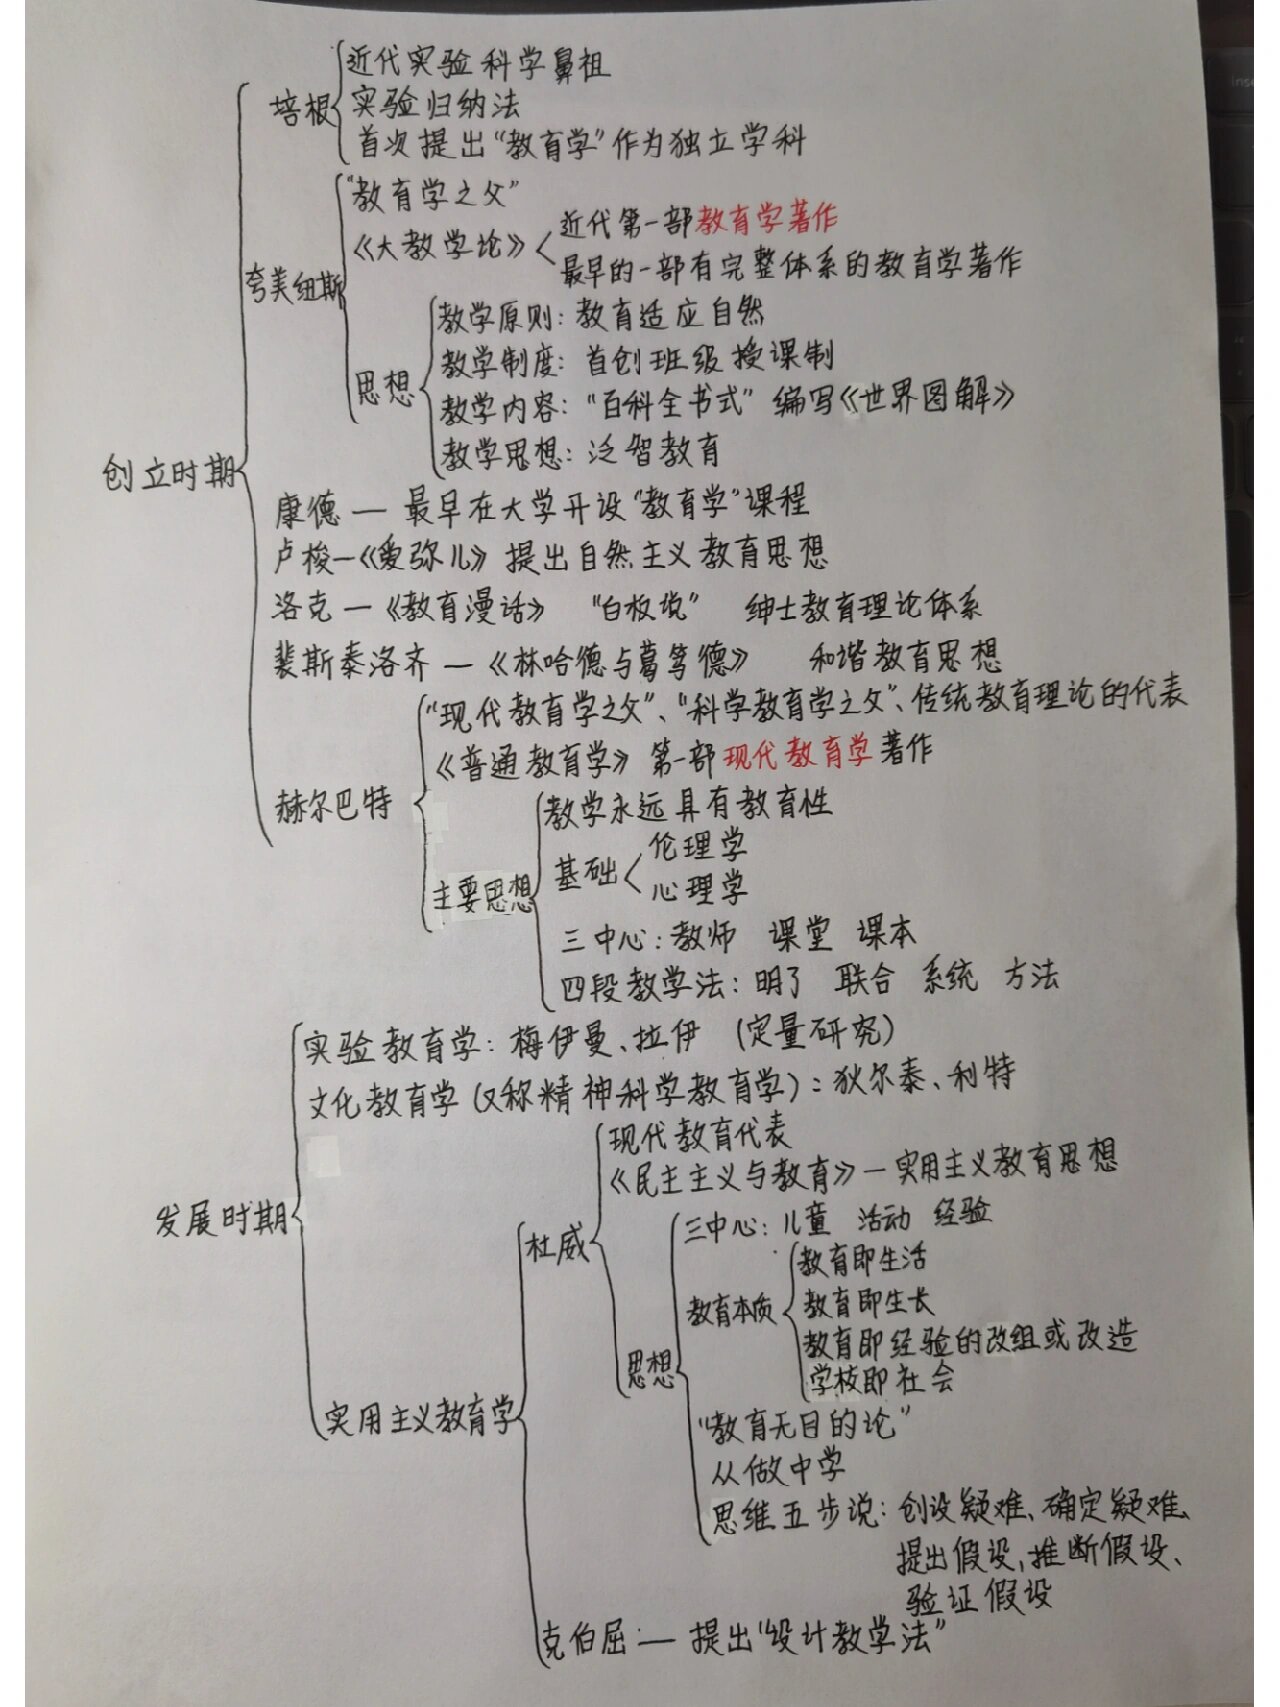 近代实验科学鼻祖
培根 实验归纳法
首次提出“教育学”作为独立学科
“教育学之父”
《大教学论》 近代第一部教育学著作
最早的一部有完整体系的教育学著作
夸美纽斯
教学原则：教育适应自然
教学制度：首创班级授课制
思想
教学内容：“百科全书式” 编写《世界图解》
教学思想：泛智教育
创立时期
康德 — 最早在大学开设“教育学”课程
卢梭 —《爱弥儿》提出自然主义教育思想
洛克 — 《教育漫话》 “白板说” 绅士教育理论体系
裴斯泰洛齐 — 《林哈德与葛笃德》 和谐教育思想
“现代教育学之父”、“科学教育学之父”、传统教育理论的代表
《普通教育学》第一部现代教育学著作
赫尔巴特
教学永远具有教育性
主要思想
基础 伦理学
心理学
三中心：教师 课堂 课本
四段教学法：明了 联合 系统 方法
实验教育学：梅伊曼、拉伊 (定量研究)
文化教育学(又称精神科学教育学)：狄尔泰、利特
现代教育代表
《民主主义与教育》— 实用主义教育思想
发展时期
杜威
三中心：儿童 活动 经验
教育即生活
教育本质 教育即生长
教育即经验的改组或改造
思想
学校即社会
实用主义教育学
“教育无目的论”
从做中学
思维五步说：创设疑难、确定疑难、
提出假设、推断假设、
验证假设
克伯屈 — 提出“设计教学法”
inse